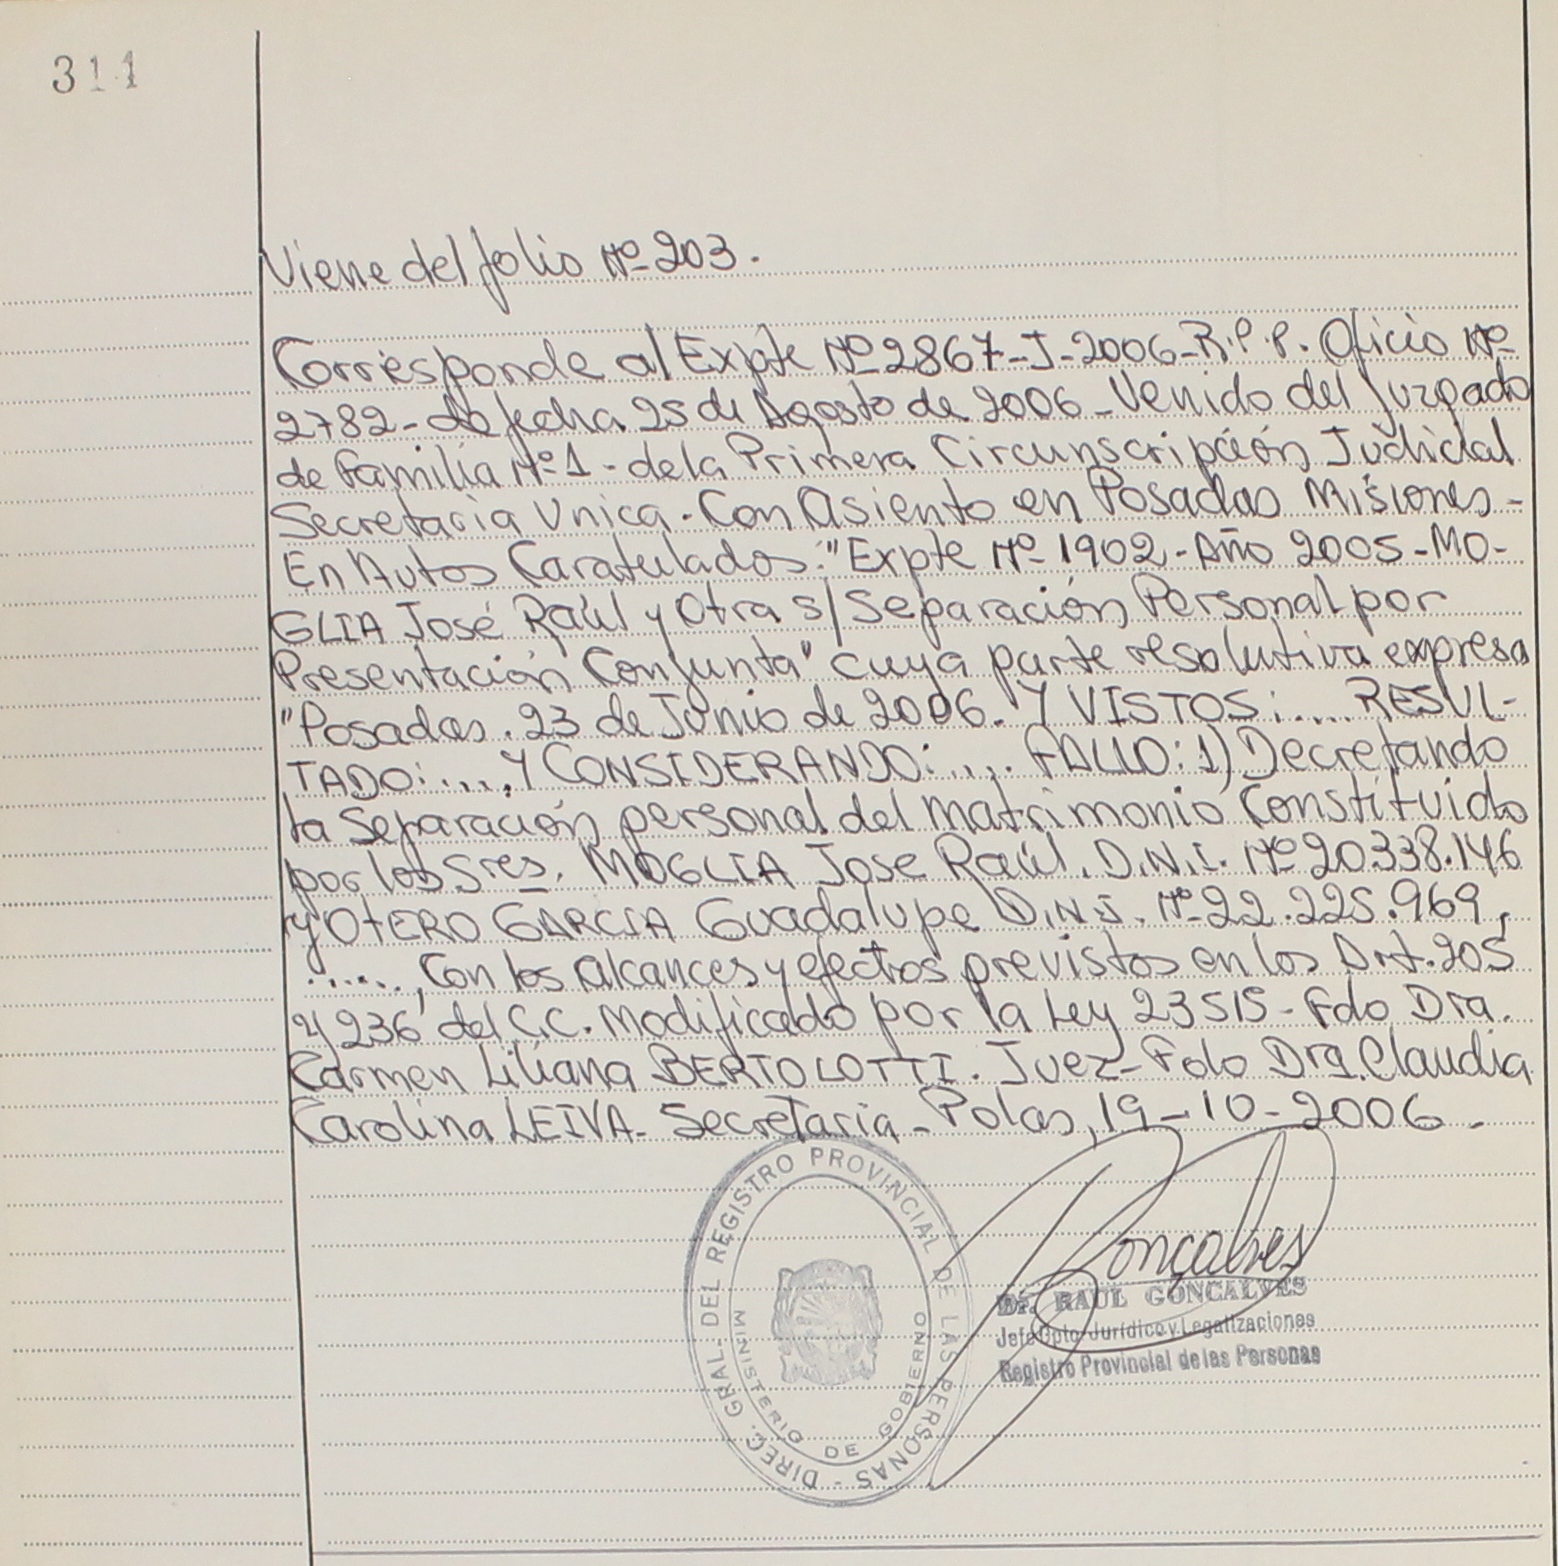 311
Viene del folio Nº 203.
Corresponde al Expte Nº 2867-J-2006-R.P.P. Oficio Nº
2782- de fecha 25 de Agosto de 2006-Venido del Juzgado
de Familia Nº 1 - de la Primera Circunscripción Judicial
Secretaria Unica. Con Asiento en Posadas Misiones-
En Autos Caratulados: "Expte Nº 1902-Año 2005-MO-
GLIA José Raúl y Otra s/ Separación Personal por
Presentación Conjunta" cuya parte resolutiva expresa
"Posadas. 23 de Junio de 2006. Y VISTOS: .... RESUL-
TADO: .... Y CONSIDERANDO: .... FALLO: 1) Decretando
la Separación personal del matrimonio Constituido
por los Sres. MOGLIA Jose Raúl. D.N.I. Nº 20.338.146
y OTERO GARCIA Guadalupe D.N.I. Nº 22.225.969,
....., Con los alcances y efectos previstos en los Art. 205
y 236 del C.C. Modificado por la Ley 23515- Fdo Dra.
Carmen Liliana BERTOLOTTI. Juez- Fdo Dra. Claudia
Carolina LEIVA- Secretaria- Pdas, 19-10-2006-
DIREC. GRAL. DEL REGISTRO PROVINCIAL DE LAS PERSONAS -
MINISTERIO DE GOBIERNO
Gonçalves
Dr. RAUL GONCALVES
Jefe Dpto. Jurídico y Legalizaciones
Registro Provincial de las Personas